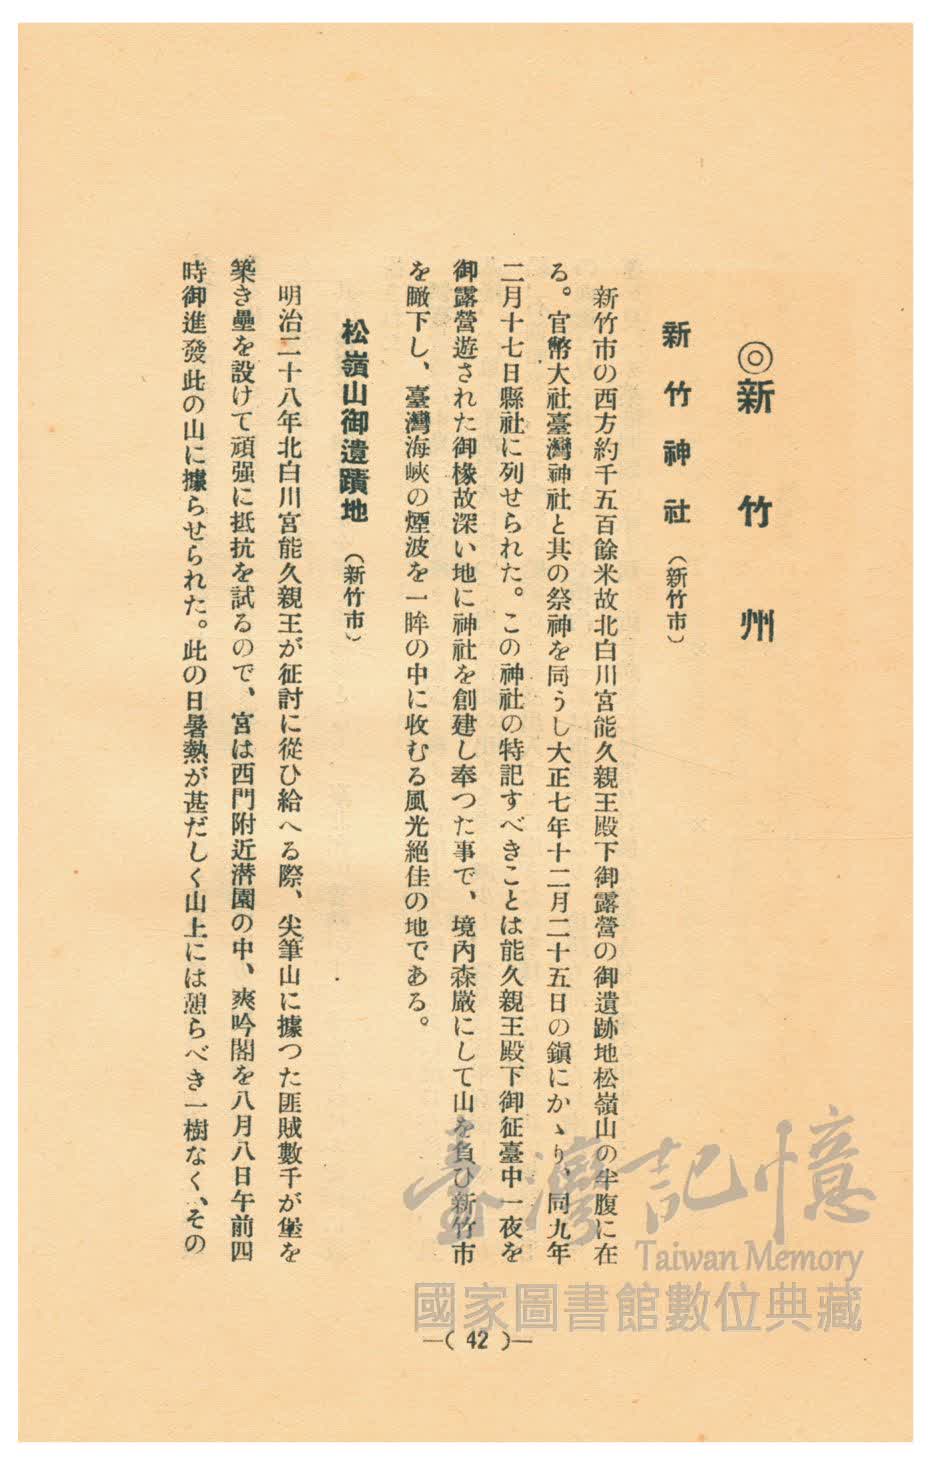 ◎新竹州
新竹神社（新竹市）
新竹市の西方約千五百餘米故北白川宮能久親王殿下御露營の御遺跡地松嶺山の半腹に在
る。官幣大社臺灣神社と其の祭神を同うし大正七年十二月二十五日の鎭にかゝり、同九年
二月十七日縣社に列せられた。この神社の特記すべきことは能久親王殿下御征臺中一夜を
御露營遊された御椽故深い地に神社を創建し奉つた事で、境內森嚴にして山を負ひ新竹市
を瞰下し、臺灣海峽の煙波を一眸の中に收むる風光絕佳の地である。
松嶺山御遺蹟地（新竹市）
明治二十八年北白川宮能久親王が征討に從ひ給へる際、尖筆山に據つた匪賊數千が堡を
築き壘を設けて頑强に抵抗を試るので、宮は西門附近潛園の中、爽吟閣を八月八日午前四
時御進發此の山に據らせられた。此の日暑熱が甚だしく山上には憩らべき一樹なく、その
臺灣記憶
Taiwan Memory
國家圖書館數位典藏
—( 42 )—